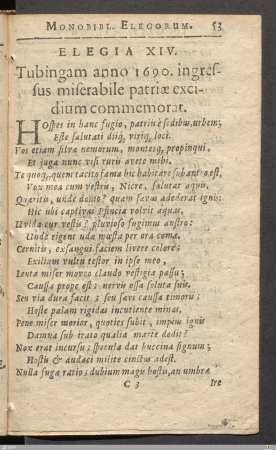 MONOBIBL. ELEGORUM. 53
ELEGIA XIV.
Tubingam anno 1690. ingres-
sus miserabile patriæ exci-
dium commemorat.
Hospes in hanc fugio, patriis è sedibus, urbem;
Este salutati diiq́, viriq, loci.
Vos etiam silvæ nemorum, montesq, propinqui,
Et juga nunc visi ruris avete mihi.
Te quoq, quem tacito fama hic habitare sub amne est,
Vox mea cum vestris, Nicre, salutat aquis.
Quæritis, unde domo? quam sævus adederat ignis:
Hic ubi captivas Pfincia volvit aquas.
Uvida cur vestis? pluvioso fugimus austro:
Unde rigent uda mussa per ora coma.
Cernitis, exsangui faciem livere colore;
Exilium vultu testor in ipse meo,
Lenta miser moveo claudo vestigia passu;
Caussa prope est: nervis essa soluta suis.
Seu via dura facit; seu sævi caussa timoris;
Hoste palam rigidas incutiente minas.
Pene miser morior, quoties subit, impius ignis
Damna sub irato qualia marte dedit?
Nox erat incursu; specula dat buccina signum;
Hostis & audaci milite cinctus adest.
Nulla fuga ratio; dubium magis hostis, an umbræ
C 3 Ire